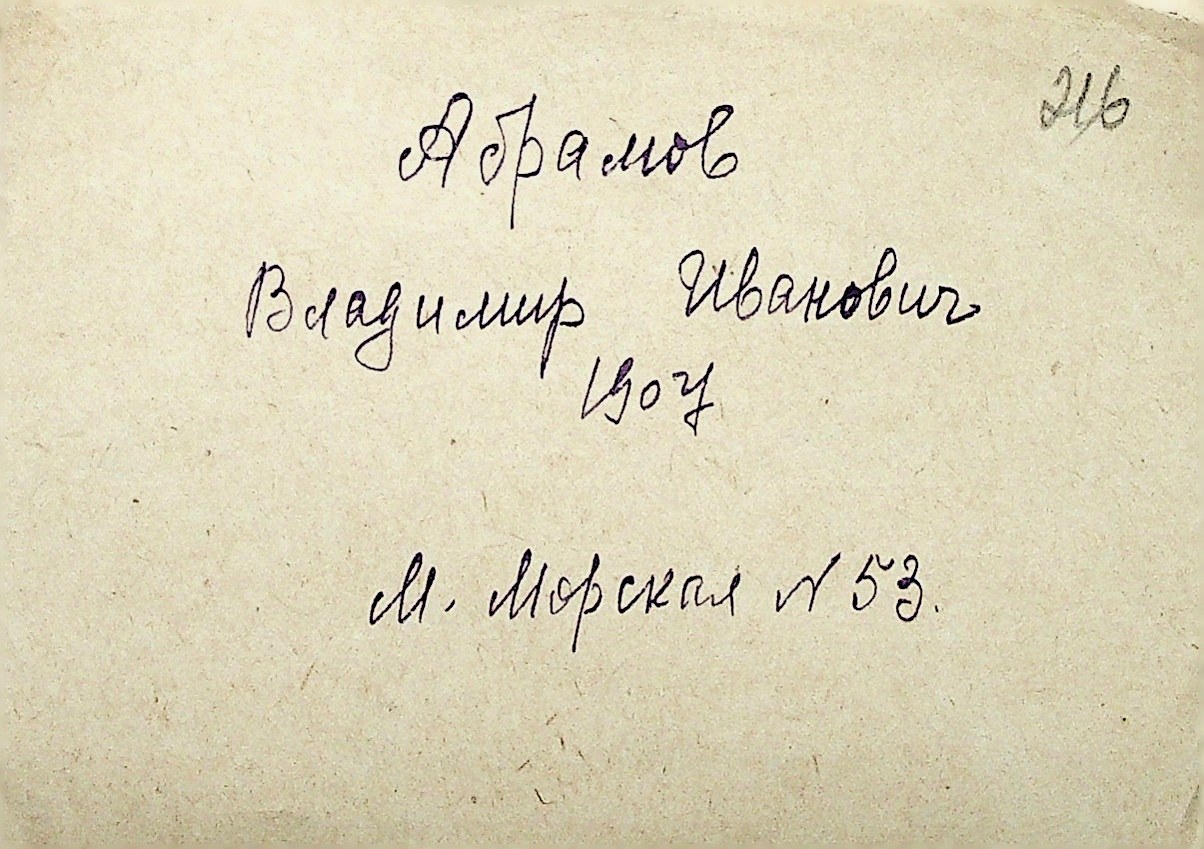 216
Абрамов
Владимир Иванович
1907
М. Морская N 53.